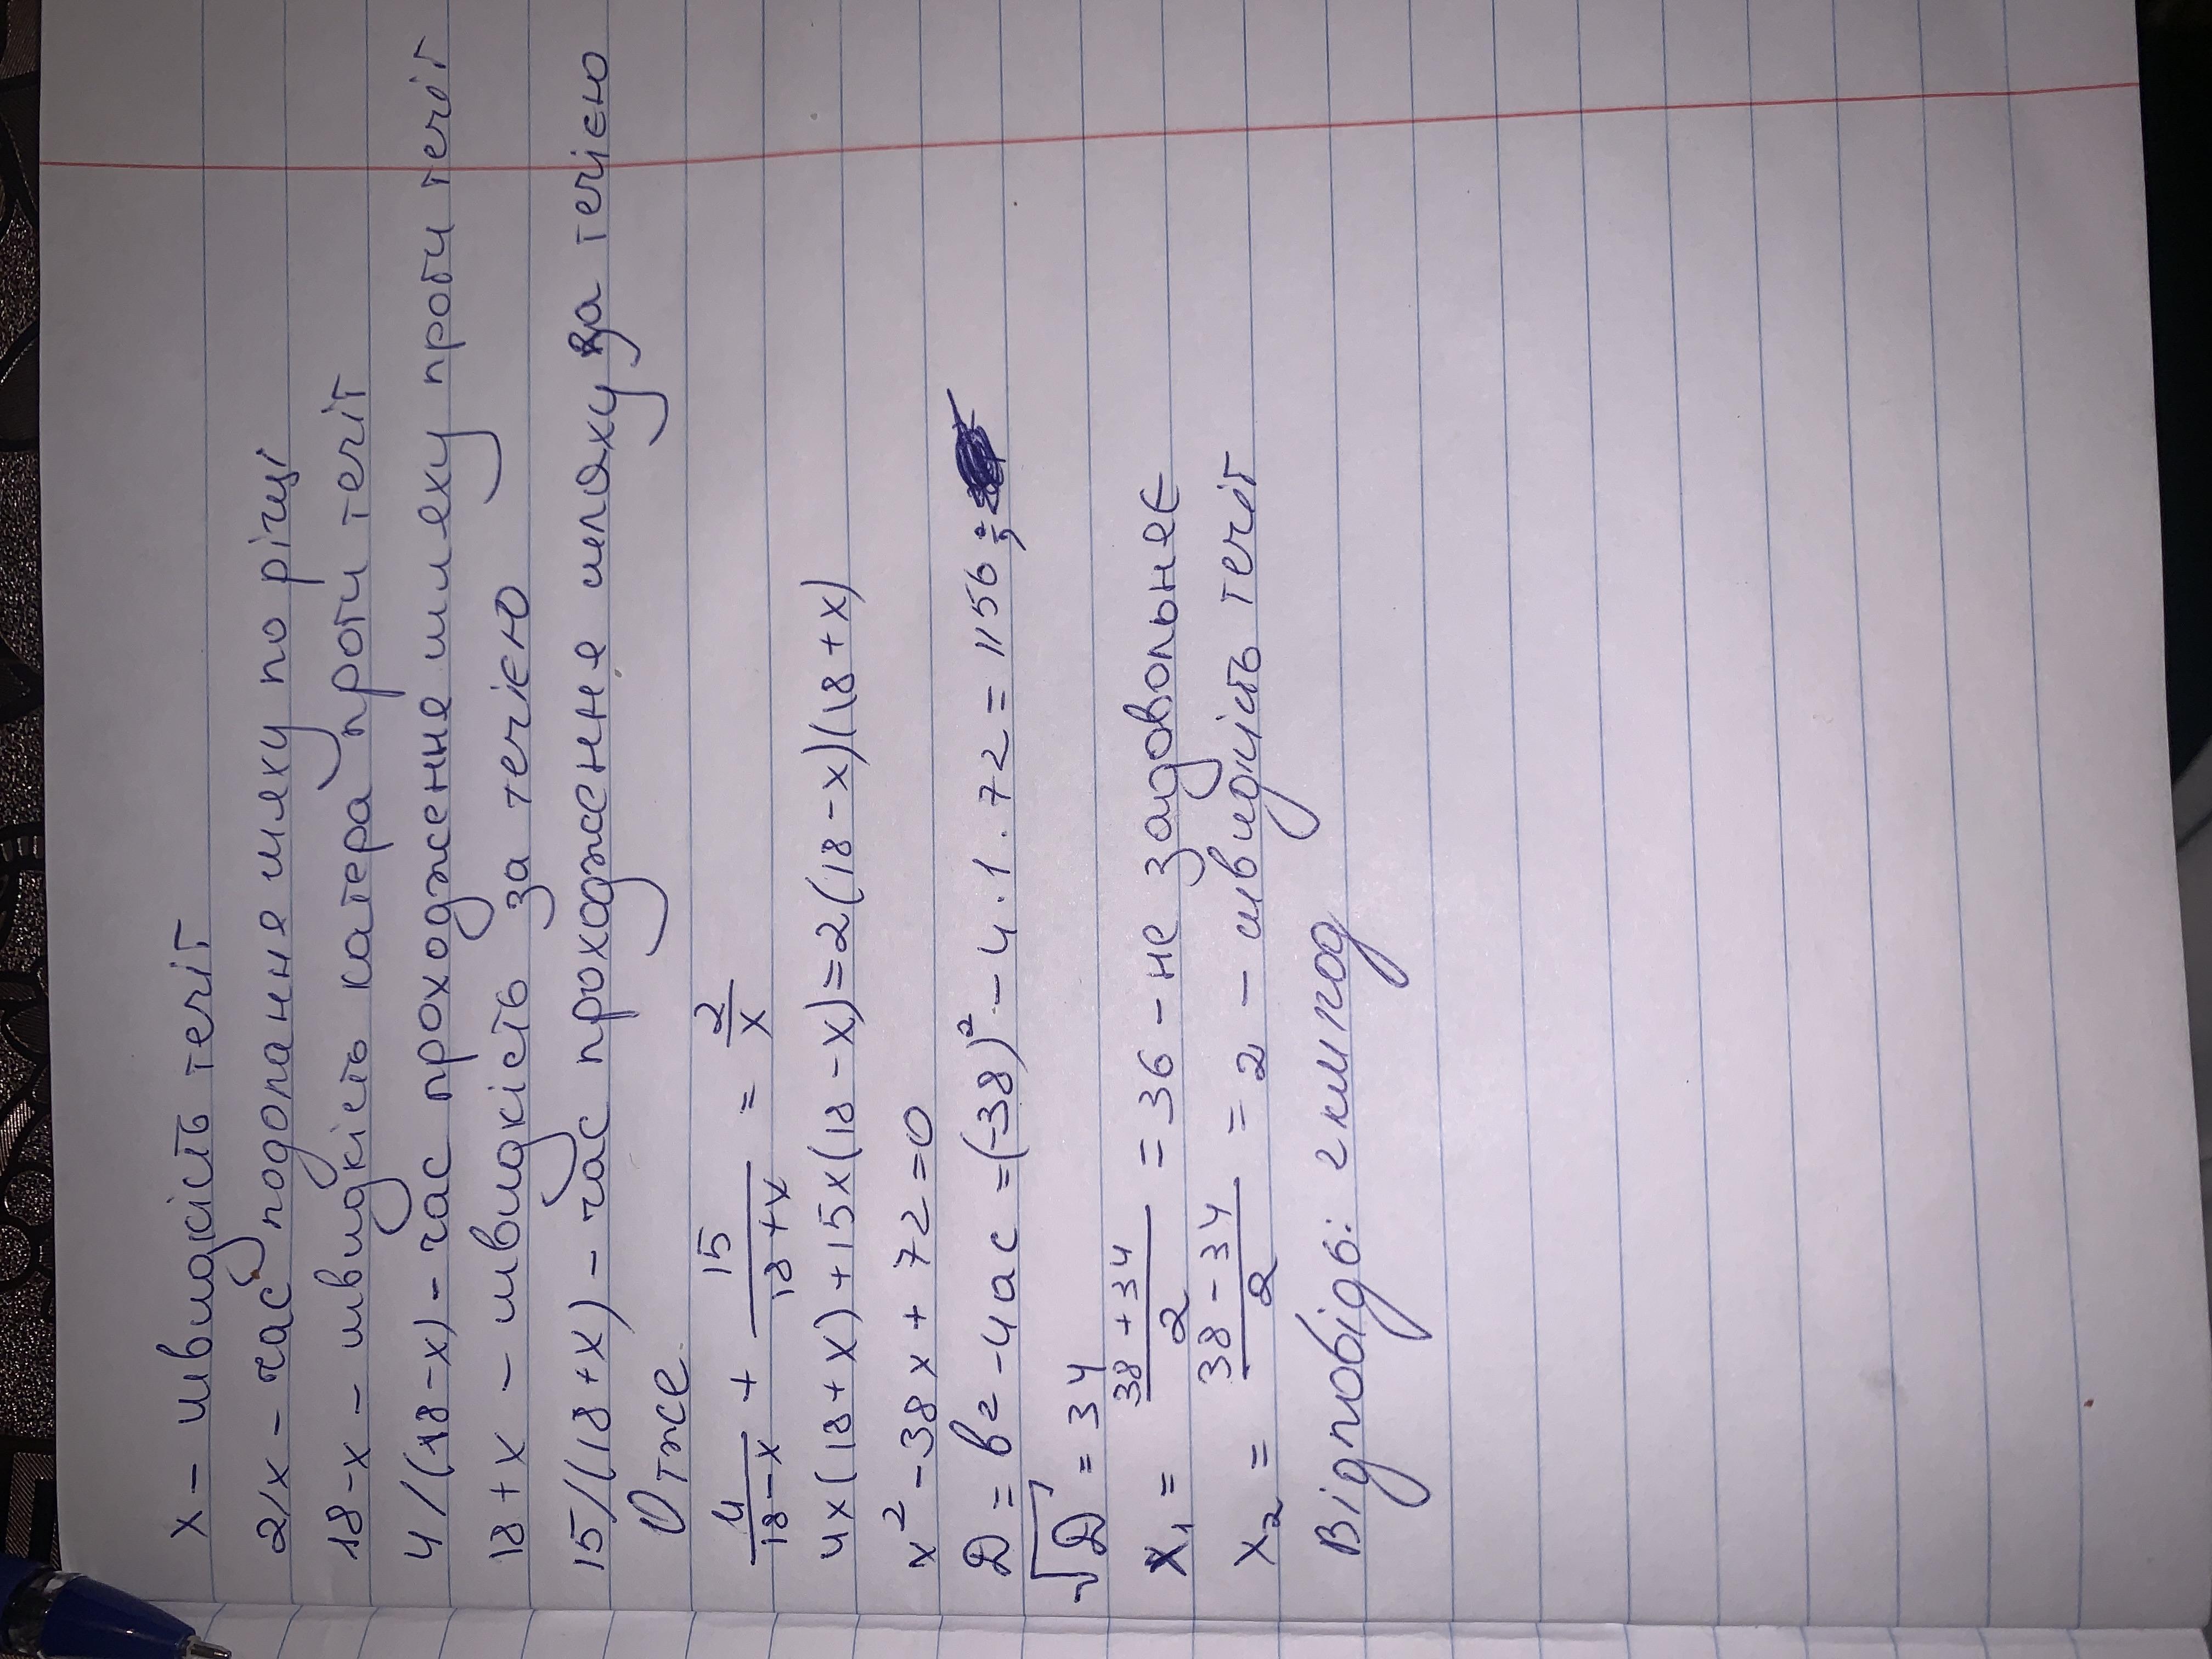 x – швидкість течії
2/x – час подолання шляху по річці
18-x – швидкість катера проти течії
4/(18-x) – час проходження шляху проти течії
18+x – швидкість за течією
15/(18+x) – час проходження шляху за течією
Отже
4/(18-x) + 15/(18+x) = 2/x
4x(18+x)+15x(18-x)=2(18-x)(18+x)
x² -38x+72=0
D=в2-4ac=(-38)²-4.1.72=1156;
√D=34
x₁ = (38+34)/2 = 36 - не задовольняє
x₂ = (38-34)/2 = 2 – швидкість течії
Відповідь: 2км год